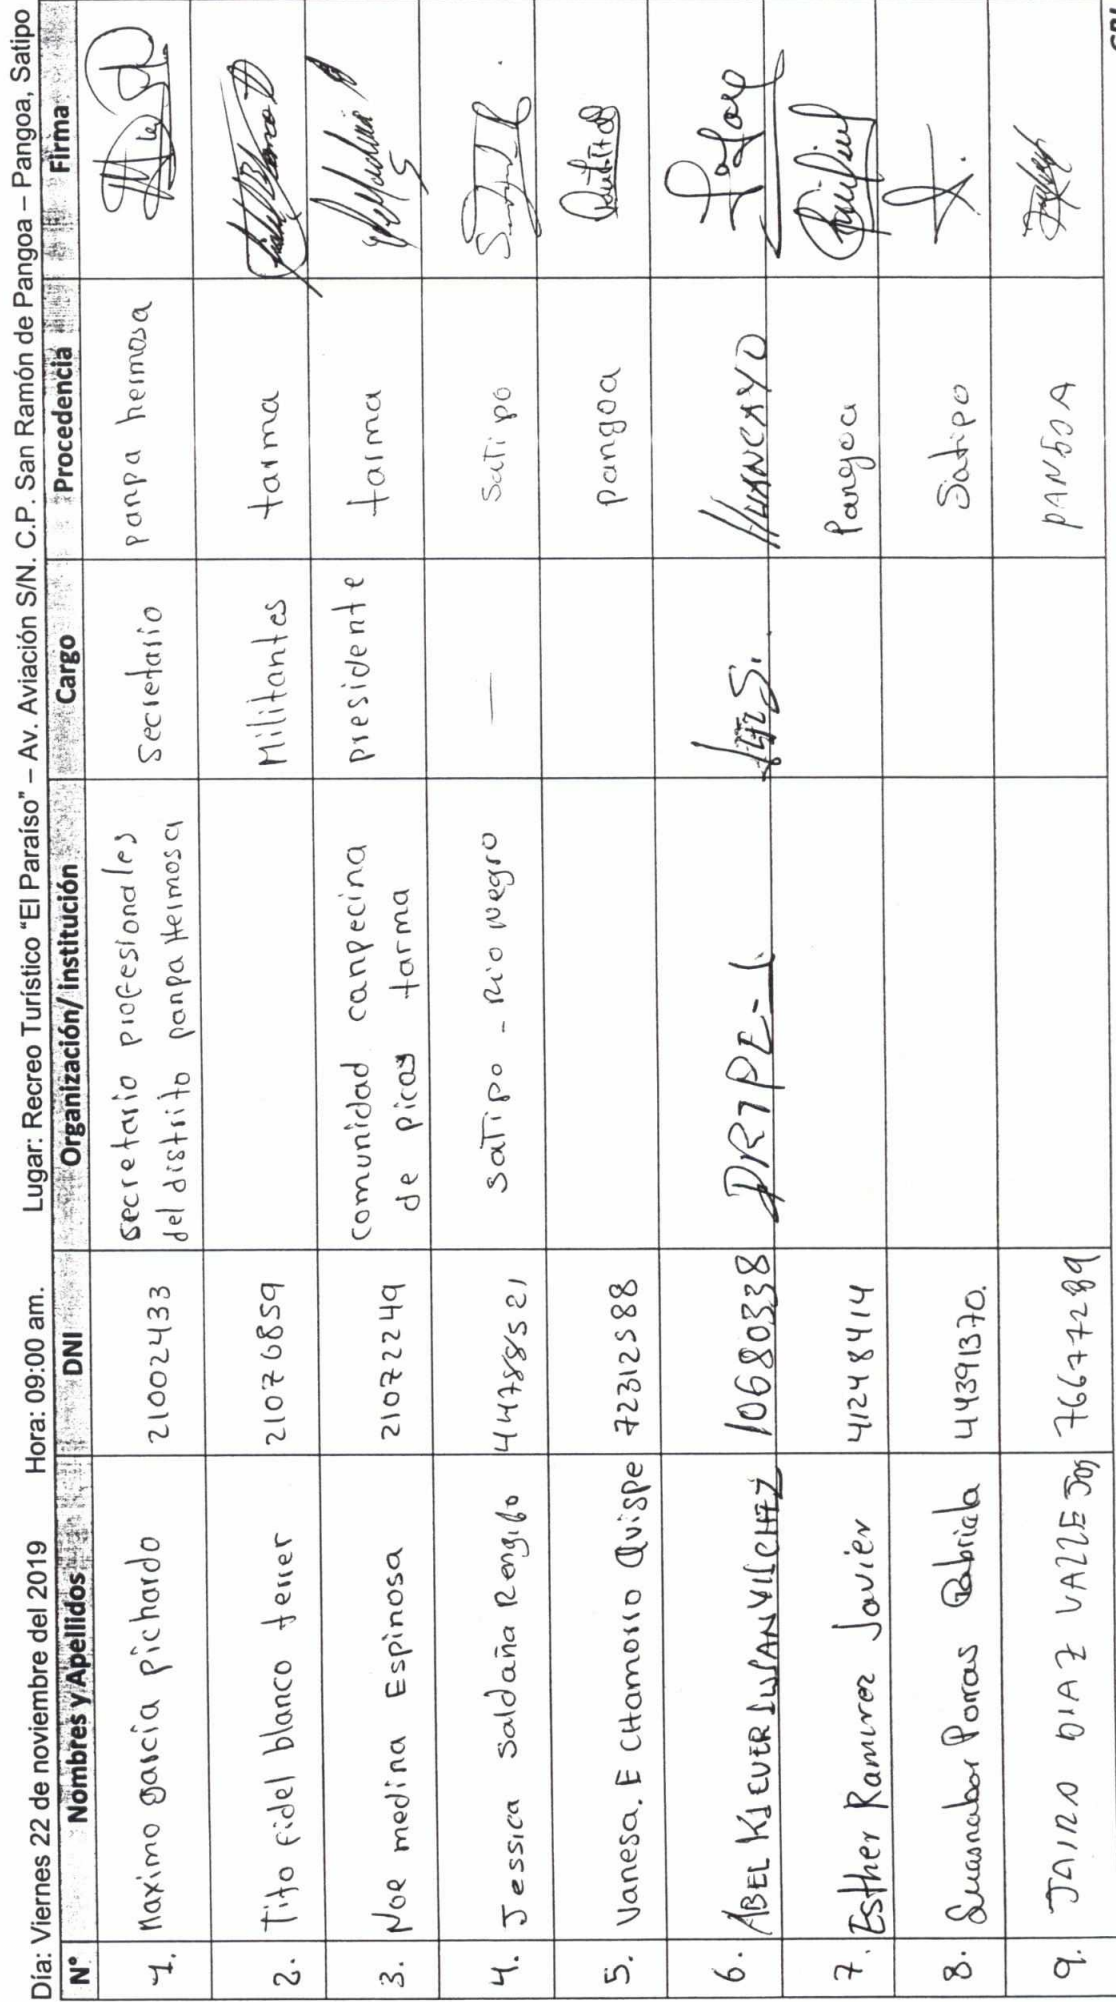 Día: Viernes 22 de noviembre del 2019 Hora: 09:00 am. Lugar: Recreo Turístico "El Paraíso" – Av. Aviación S/N. C.P. San Ramón de Pangoa – Pangoa, Satipo
N° Nombres y Apellidos DNI Organización/ institución Cargo Procedencia Firma
1. Maximo garcia pichardo 21002433 secretario profesionales del distrito panpa Hermosa Secretario panpa hermosa
2. Tito fidel blanco ferrer 21076859 Militantes tarma
3. Noe medina Espinosa 21072249 comunidad canpecina de picoy tarma presidente tarma
4. Jessica Saldaña Rengifo 44788521 Satipo - Rio Negro — Satipo
5. Vanesa. E CHamorro Quispe 72312588 pangoa
6. ABEL 10680338 DRTPE-J. HUANCAYO
7. Esther Ramirez Javier 41248414 Pangoa
8. Porras Gabriela 44391370. Satipo
9. JAIRO DIAZ 76677289 PANGOA